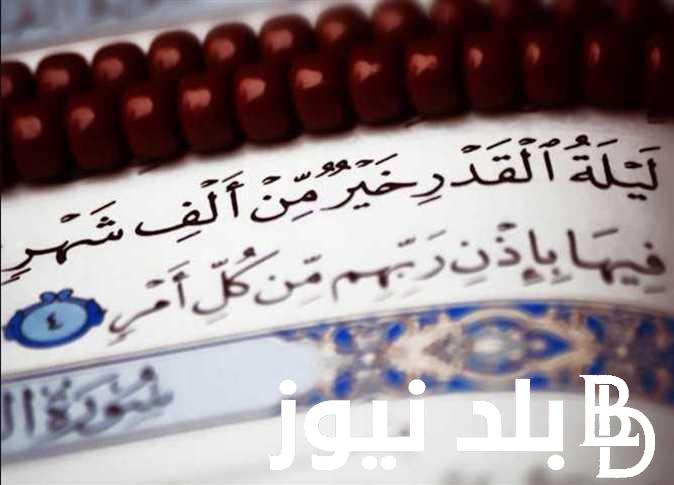 لَيْلَةُ ٱلْقَدْرِ خَيْرٌ مِّنْ أَلْفِ شَهْرٍ
فِيهَا بِإِذْنِ رَبِّهِم مِّن كُلِّ أَمْرٍ ٤
سُورَةُ ال
بلد نيوز